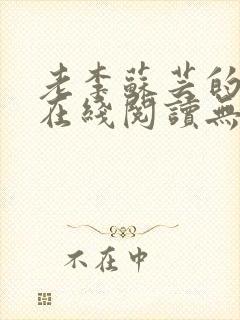 老李蘇芸的
在綫閱讀無
不在中